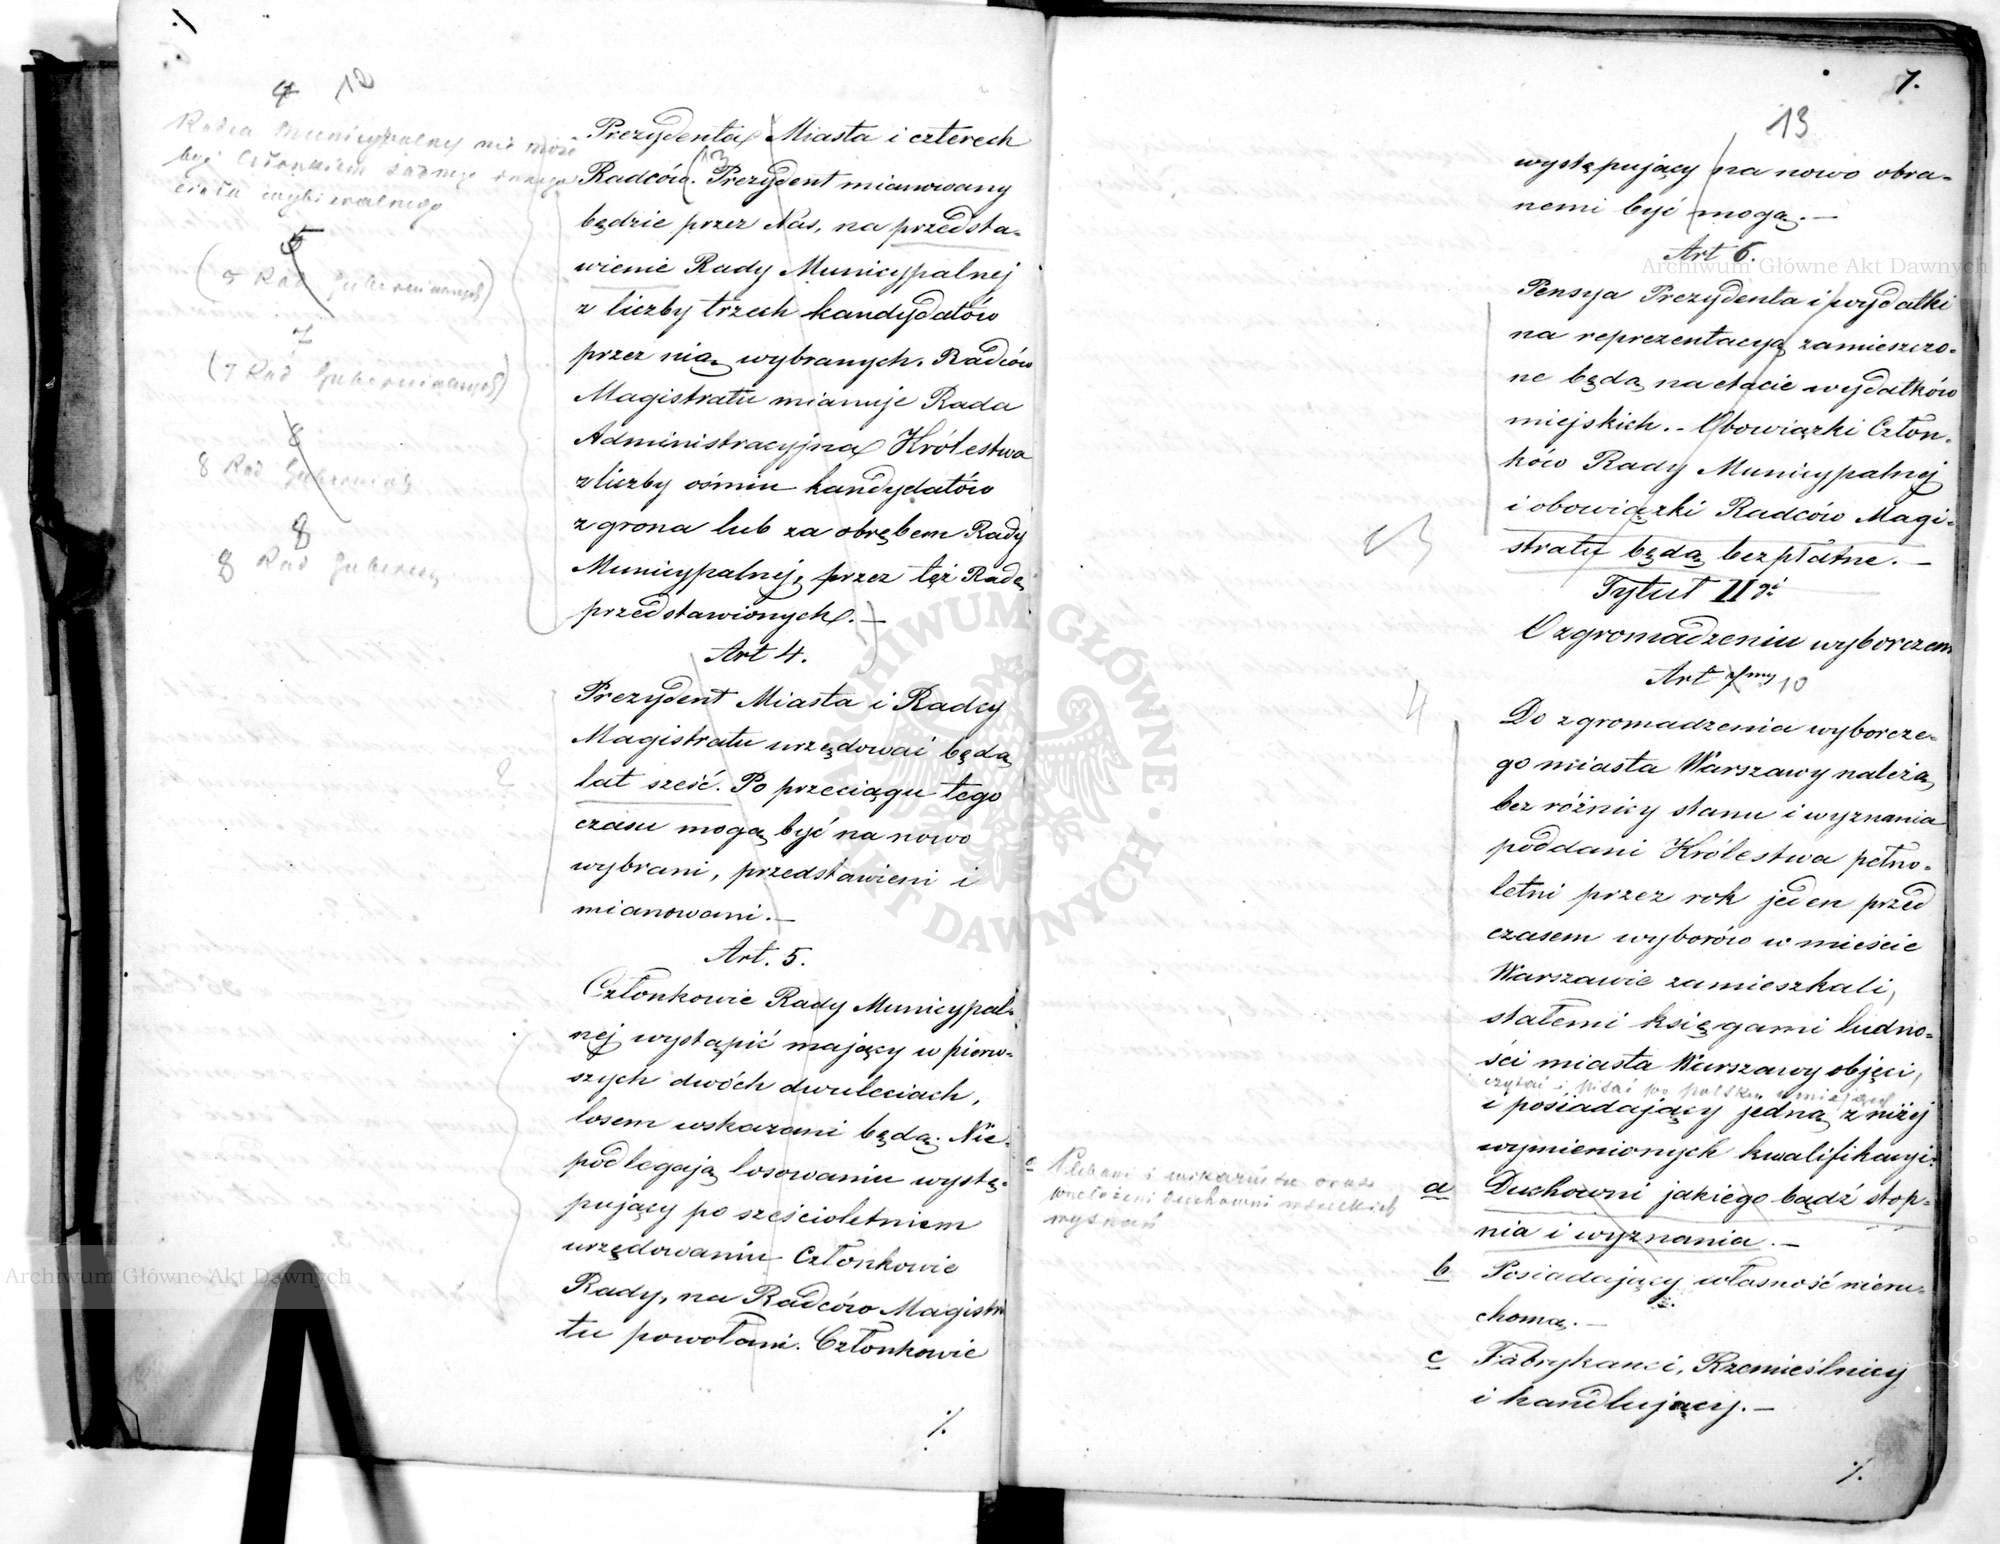 4 12
Radca Municypalny nie może
być Członkiem żadnego innego
ciała wybieralnego
6
(5 Rad Gubernianych)
7
(7 Rad Gubernialnych)
8
8 Rad Gubernial
8
8 Rad Gubern
Prezydenta Miasta i czterech
Radców. Prezydent mianowany
będzie przez Nas, na przedsta-
wienie Rady Municypalnej
z liczby trzech kandydatów
przez nią wybranych. Radców
Magistratu mianuje Rada
Administracyjna Królestwa
z liczby ośmiu kandydatów
z grona lub za obrębem Rady
Municypalnej, przez tęż Radę
przedstawionych. —
Art 4.
Prezydent Miasta i Radcy
Magistratu urzędować będą
lat sześć. Po przeciągu tego
czasu mogą być na nowo
wybrani, przedstawieni i
mianowani. —
Art. 5.
Członkowie Rady Municypal-
nej wystąpić mający w pierw-
szych dwóch dwuleciach,
losem wskazani będą. Nie
podlegają losowaniu wystę-
pujący po sześcioletniem
urzędowaniu Członkowie
Rady, na Radców Magistra
tu powołani. Członkowie
7.
13
występujący na nowo obra-
nemi być mogą. —
Art 6.
Pensya Prezydenta i wydatki
na reprezentacyą zamieszczo-
ne będą na etacie wydatków
miejskich. - Obowiązki Człon-
ków Rady Municypalnej
i obowiązki Radców Magi-
stratu będą bezpłatne. —
Tytuł II gi
O zgromadzeniu wyborczem
Art 7my 10
4
Do zgromadzenia wyborcze-
go miasta Warszawy należą
bez różnicy stanu i wyznania
poddani Królestwa pełno-
letni przez rok jeden przed
czasem wyborów w mieście
Warszawie zamieszkali,
stałemi księgami ludno-
ści miasta Warszawy objęci,
czytać i pisać po polsku umiejący
i posiadający jedną z niżej
wymienionych kwalifikacyi:
a Duchowni jakiego bądź stop-
nia i wyznania. —
Plebani i wikaryusze oraz
duchowni wszelkich
wyznań
b Posiadający własność nieru-
chomą. —
c Fabrykanci, Rzemieślnicy
i handlujący. —
Archiwum Główne Akt Dawnych
Archiwum Główne Akt Dawnych
ARCHIWUM GŁÓWNE · AKT DAWNYCH ·